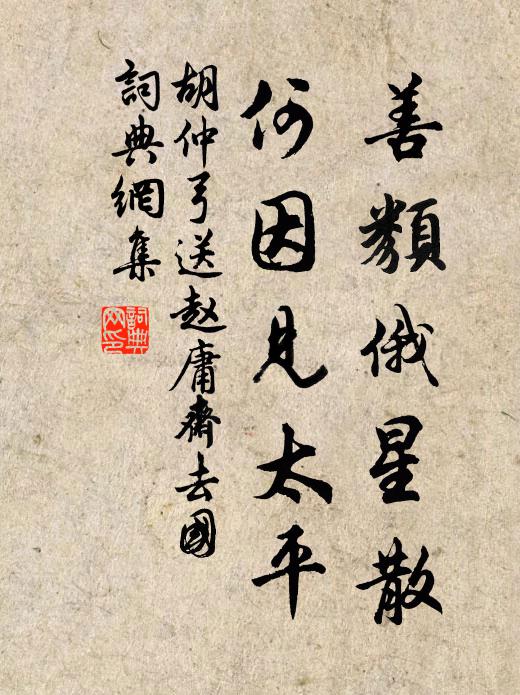 善類俄星散
何因見太平
胡仲弓送赵庸齋去國
詞典網集
詞典網印